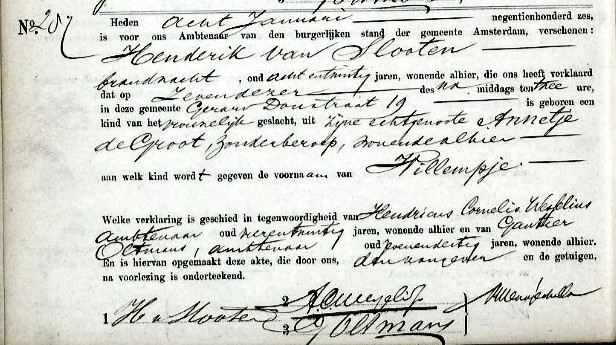 No. 287
Heden acht Januari negentienhonderd zes,
is voor ons Ambtenaar van den burgerlijken stand der gemeente Amsterdam, verschenen:
Henderik van Slooten
brandwacht, oud acht en twintig jaren, wonende alhier, die ons heeft verklaard
dat op Zevendezer des na middags ten twee ure,
in deze gemeente Gerard Doustraat 19 is geboren een
kind van het vrouwelijk geslacht, uit zijne echtgenoote Annetje
de Groot, zonder beroep, wonende alhier
aan welk kind wordt gegeven de voornaam van Willempje
Welke verklaring is geschied in tegenwoordigheid van Hendricus Cornelis Wesselius
ambtenaar oud twintig jaren, wonende alhier en van
Oltmans, ambtenaar oud dertig jaren, wonende alhier.
En is hiervan opgemaakt deze akte, die door ons, den aangever en de getuigen,
na voorlezing is onderteekend.
1 H v Slooten
2
3 Oltmans